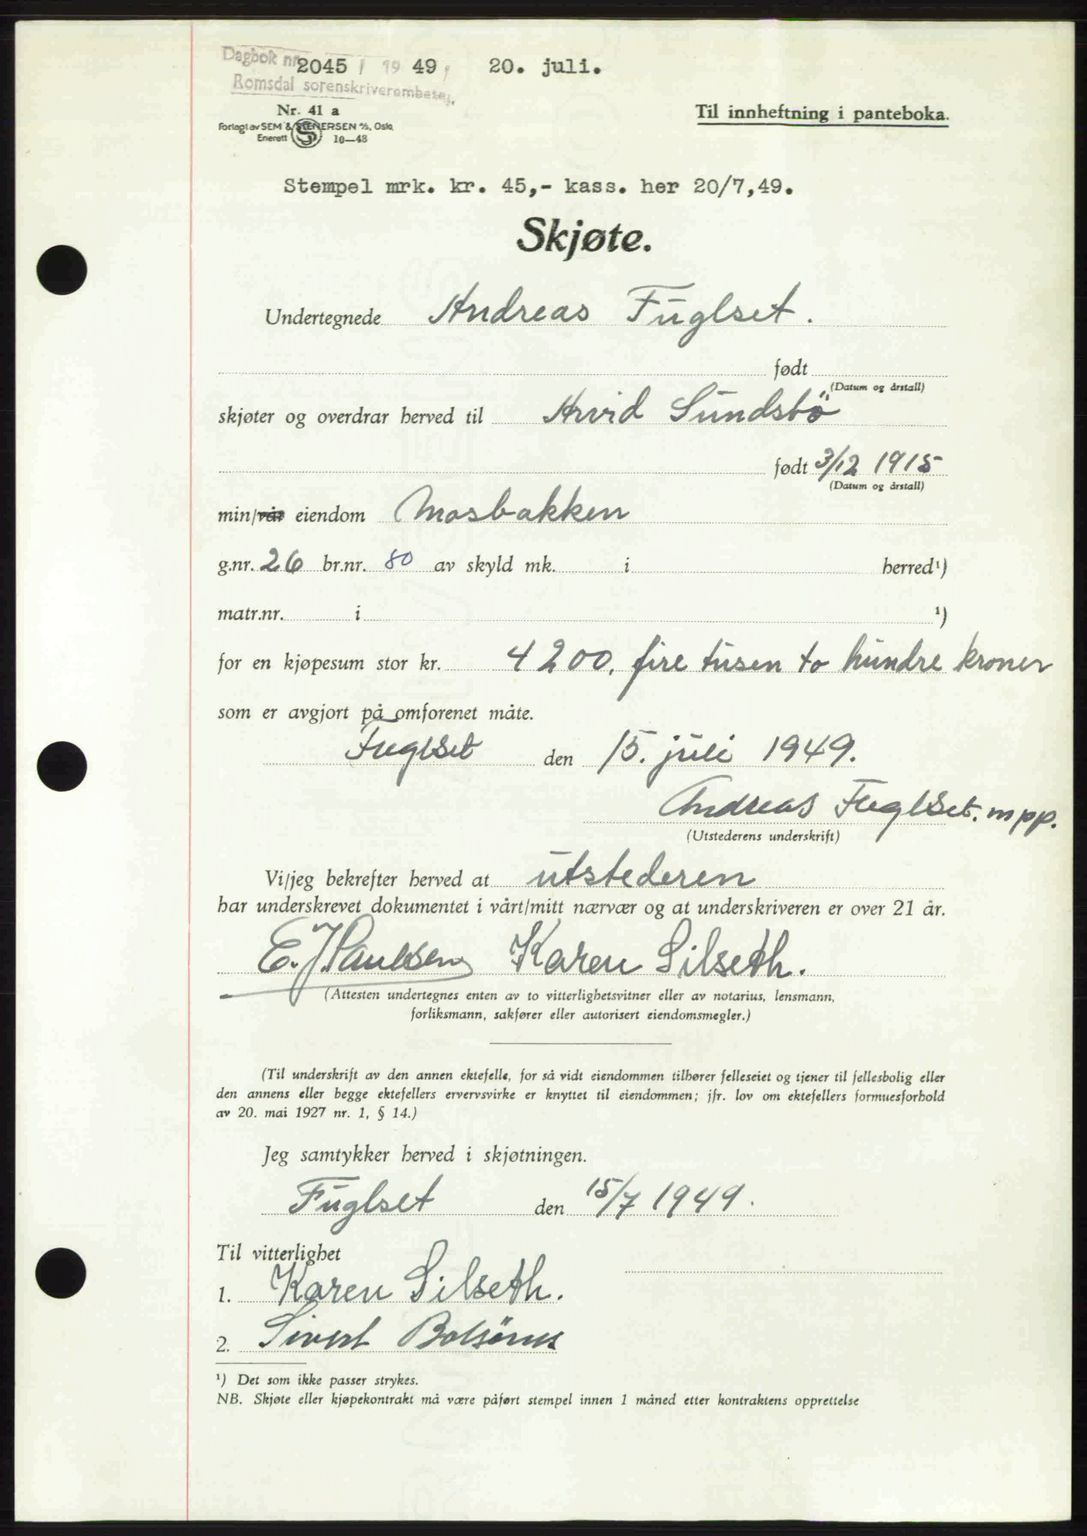 Dagbok nr. 2045 / 1949, 20. juli.
Romsdal sorenskriverembete.
Nr. 41 a
Til innheftning i panteboka.
Forlagt av SEM & STENERSEN A/S, Oslo
Enerett 10—48
Stempel mrk. kr. 45,- kass. her 20/7,49.
Skjøte.
Undertegnede Andreas Fuglset.
født
(Datum og årstall)
skjøter og overdrar herved til Arvid Sundsbö
født 3/12 1915
(Datum og årstall)
min/vår eiendom Mosbakken
g.nr. 26 br.nr. 80 av skyld mk. i herred¹)
matr.nr. i ¹)
for en kjøpesum stor kr. 4200, fire tusen to hundre kroner
som er avgjort på omforenet måte.
Fuglset den 15. juli 1949.
Andreas Fuglset. m pp.
(Utstederens underskrift)
Vi/jeg bekrefter herved at utstederen
har underskrevet dokumentet i vårt/mitt nærvær og at underskriveren er over 21 år.
E. J. Paulsen Karen Silseth.
(Attesten undertegnes enten av to vitterlighetsvitner eller av notarius, lensmann,
forliksmann, sakfører eller autorisert eiendomsmegler.)
(Til underskrift av den annen ektefelle, for så vidt eiendommen tilhører felleseiet og tjener til fellesbolig eller
den annens eller begge ektefellers ervervsvirke er knyttet til eiendommen; jfr. lov om ektefellers formuesforhold
av 20. mai 1927 nr. 1, § 14.)
Jeg samtykker herved i skjøtningen.
Fuglset den 15/7 1949.
Til vitterlighet
1. Karen Silseth.
2. Sivert Bolsönes
¹) Det som ikke passer strykes.
NB. Skjøte eller kjøpekontrakt må være påført stempel innen 1 måned etter kontraktens opprettelse